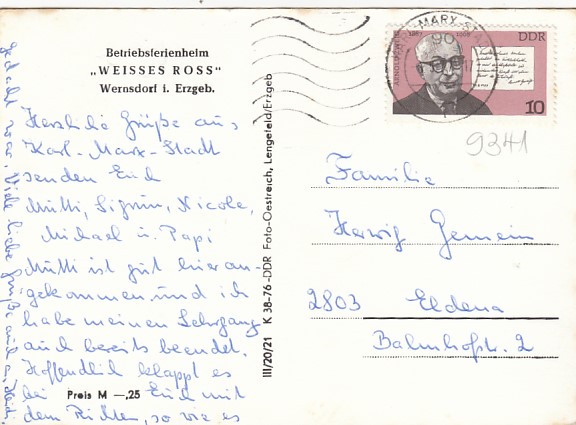 Betriebsferienheim
„WEISSES ROSS"
Wernsdorf i. Erzgeb.
Herzliche Grüße aus
Karl-Marx-Stadt
senden Euch
Mutti, Sigrun, Nicole,
Michael u. Papi
Mutti ist gut hier an-
gekommen und ich
habe meinen Lehrgang
auch bereits beendet.
Hoffentlich klappt es
bei Euch mit
Preis M —,25
dem Richten, so wie es
gedacht war. Viele liebe Grüße auch an
III/20/21 K 38-76-DDR Foto-Oestreich, Lengefeld/Erzgeb
MARX-STADT
90
ARNOLD ZWEIG
1887 1968
DDR
10
9341
Familie
Herwig Gemein
2803 Eldena
Bahnhofstr. 2